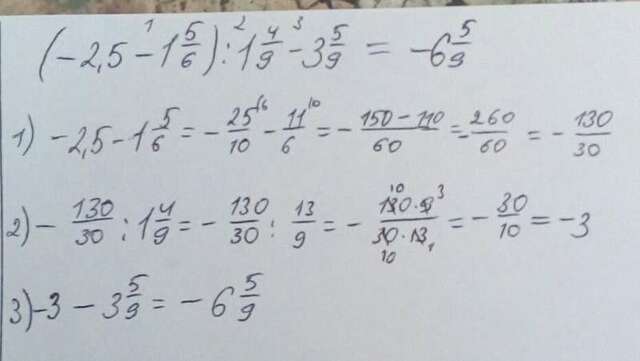 (-2,5 - 1 5/6) : 1 4/9 - 3 5/9 = -6 5/9
1) -2,5 - 1 5/6 = - 25/10 - 11/6 = - (150 - 110)/60 = - 260/60 = - 130/30
2) - 130/30 : 1 4/9 = - 130/30 : 13/9 = - (130 · 9)/(30 · 13) = - 30/10 = -3
3) -3 - 3 5/9 = -6 5/9